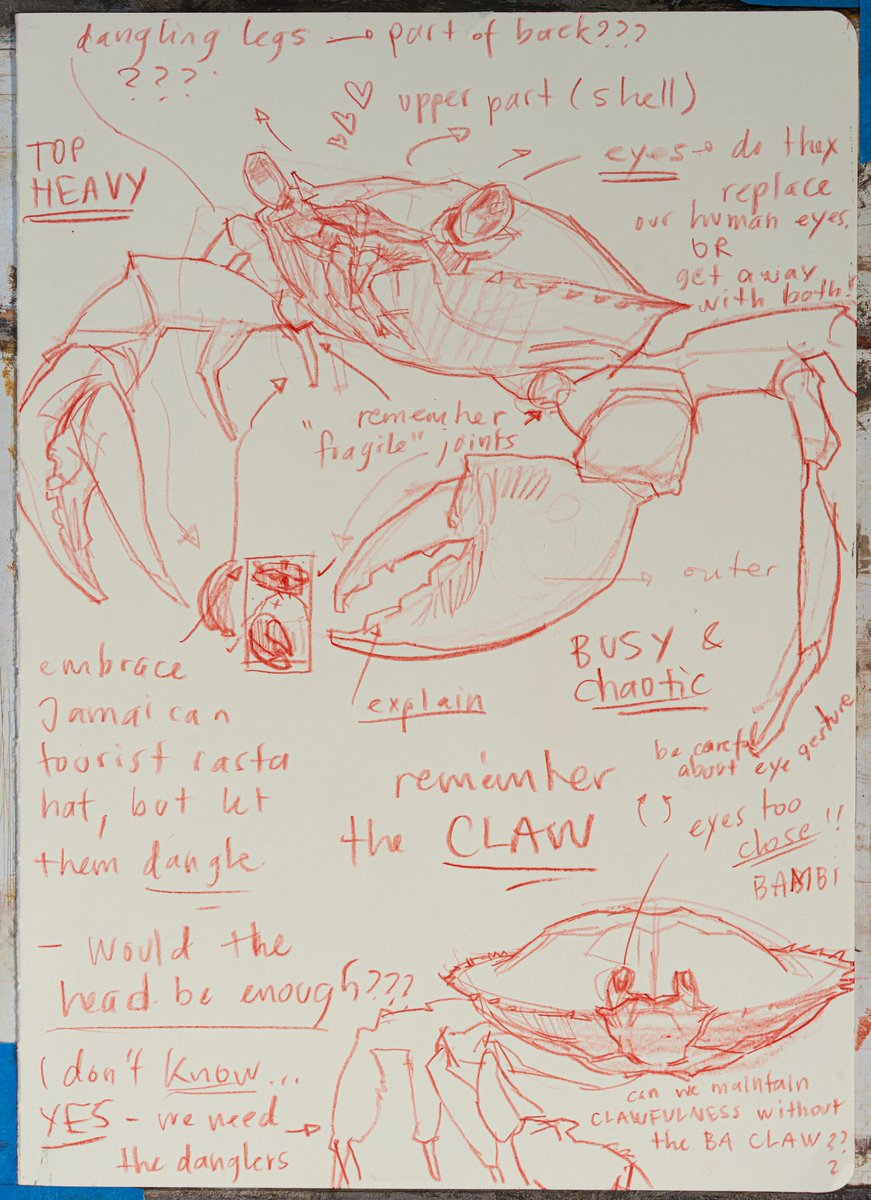 dangling legs → part of back???
???
upper part (shell)
TOP
HEAVY
eyes → do they
replace
our human eyes,
OR
get away
with both?
remember
"fragile" joints
outer
BUSY &
chaotic
explain
embrace
Jamaican
tourist rasta
hat, but let
them dangle
be careful
about eye gesture
remember
the CLAW
eyes too
close!!
BAMBI
- Would the
head be enough???
I don't know...
YES - we need
the danglers
can we maintain
CLAWFULNESS without
the BA CLAW??
?